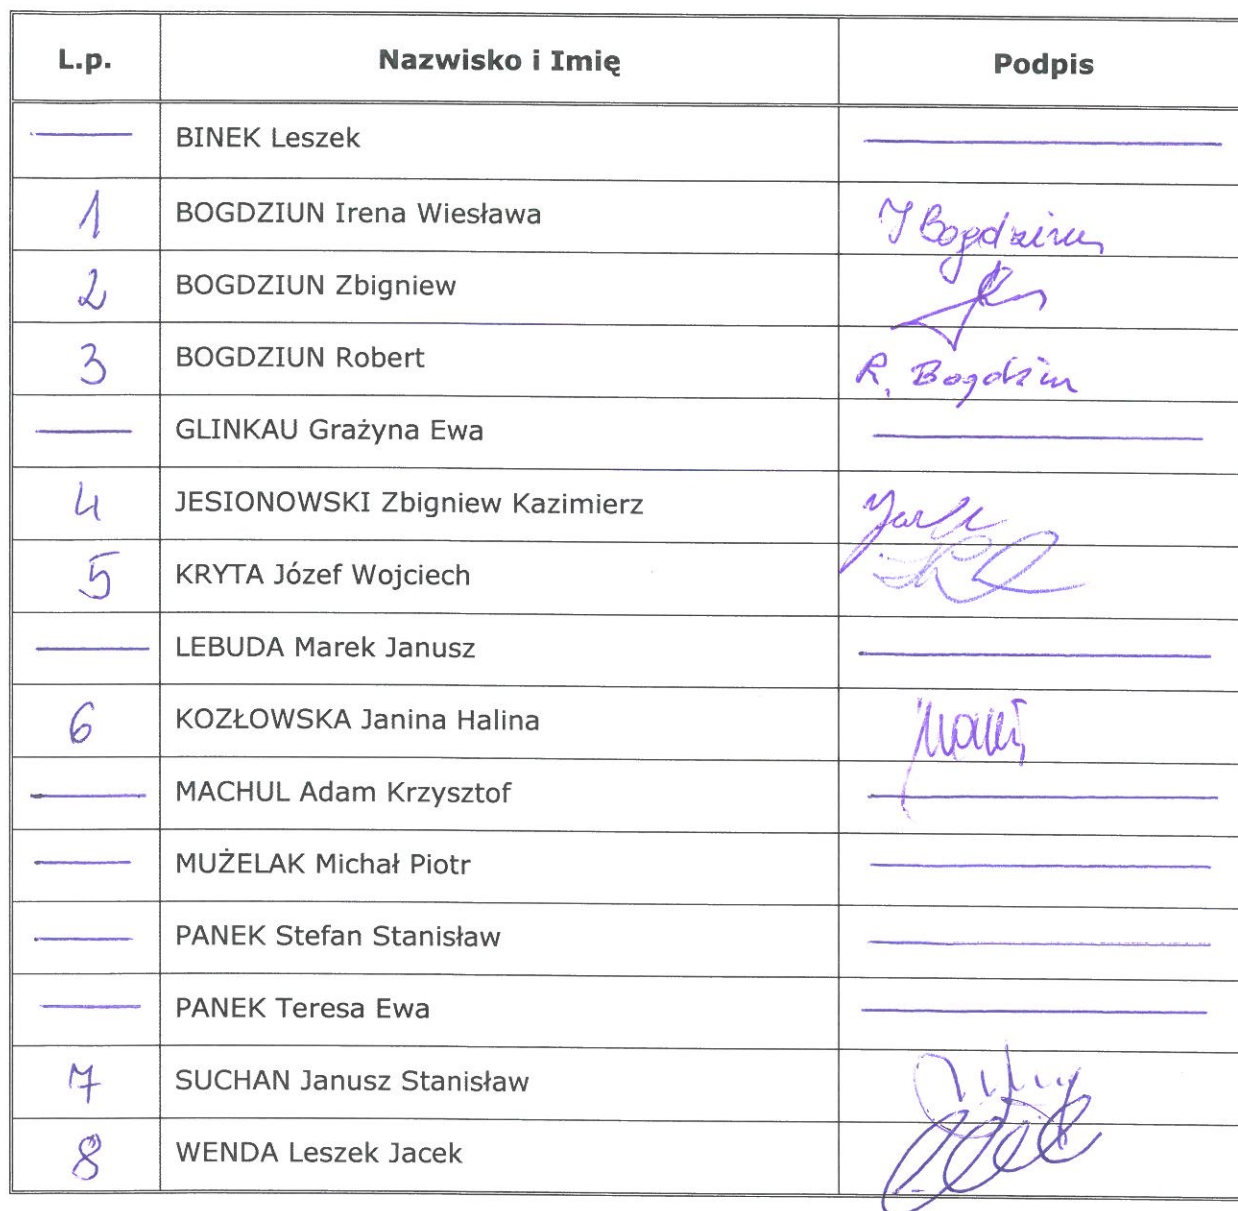 L.p. Nazwisko i Imię Podpis
BINEK Leszek
1 BOGDZIUN Irena Wiesława J Bogdziun
2 BOGDZIUN Zbigniew
3 BOGDZIUN Robert R. Bogdziun
GLINKAU Grażyna Ewa
4 JESIONOWSKI Zbigniew Kazimierz
5 KRYTA Józef Wojciech
LEBUDA Marek Janusz
6 KOZŁOWSKA Janina Halina
MACHUL Adam Krzysztof
MUŻELAK Michał Piotr
PANEK Stefan Stanisław
PANEK Teresa Ewa
7 SUCHAN Janusz Stanisław
8 WENDA Leszek Jacek